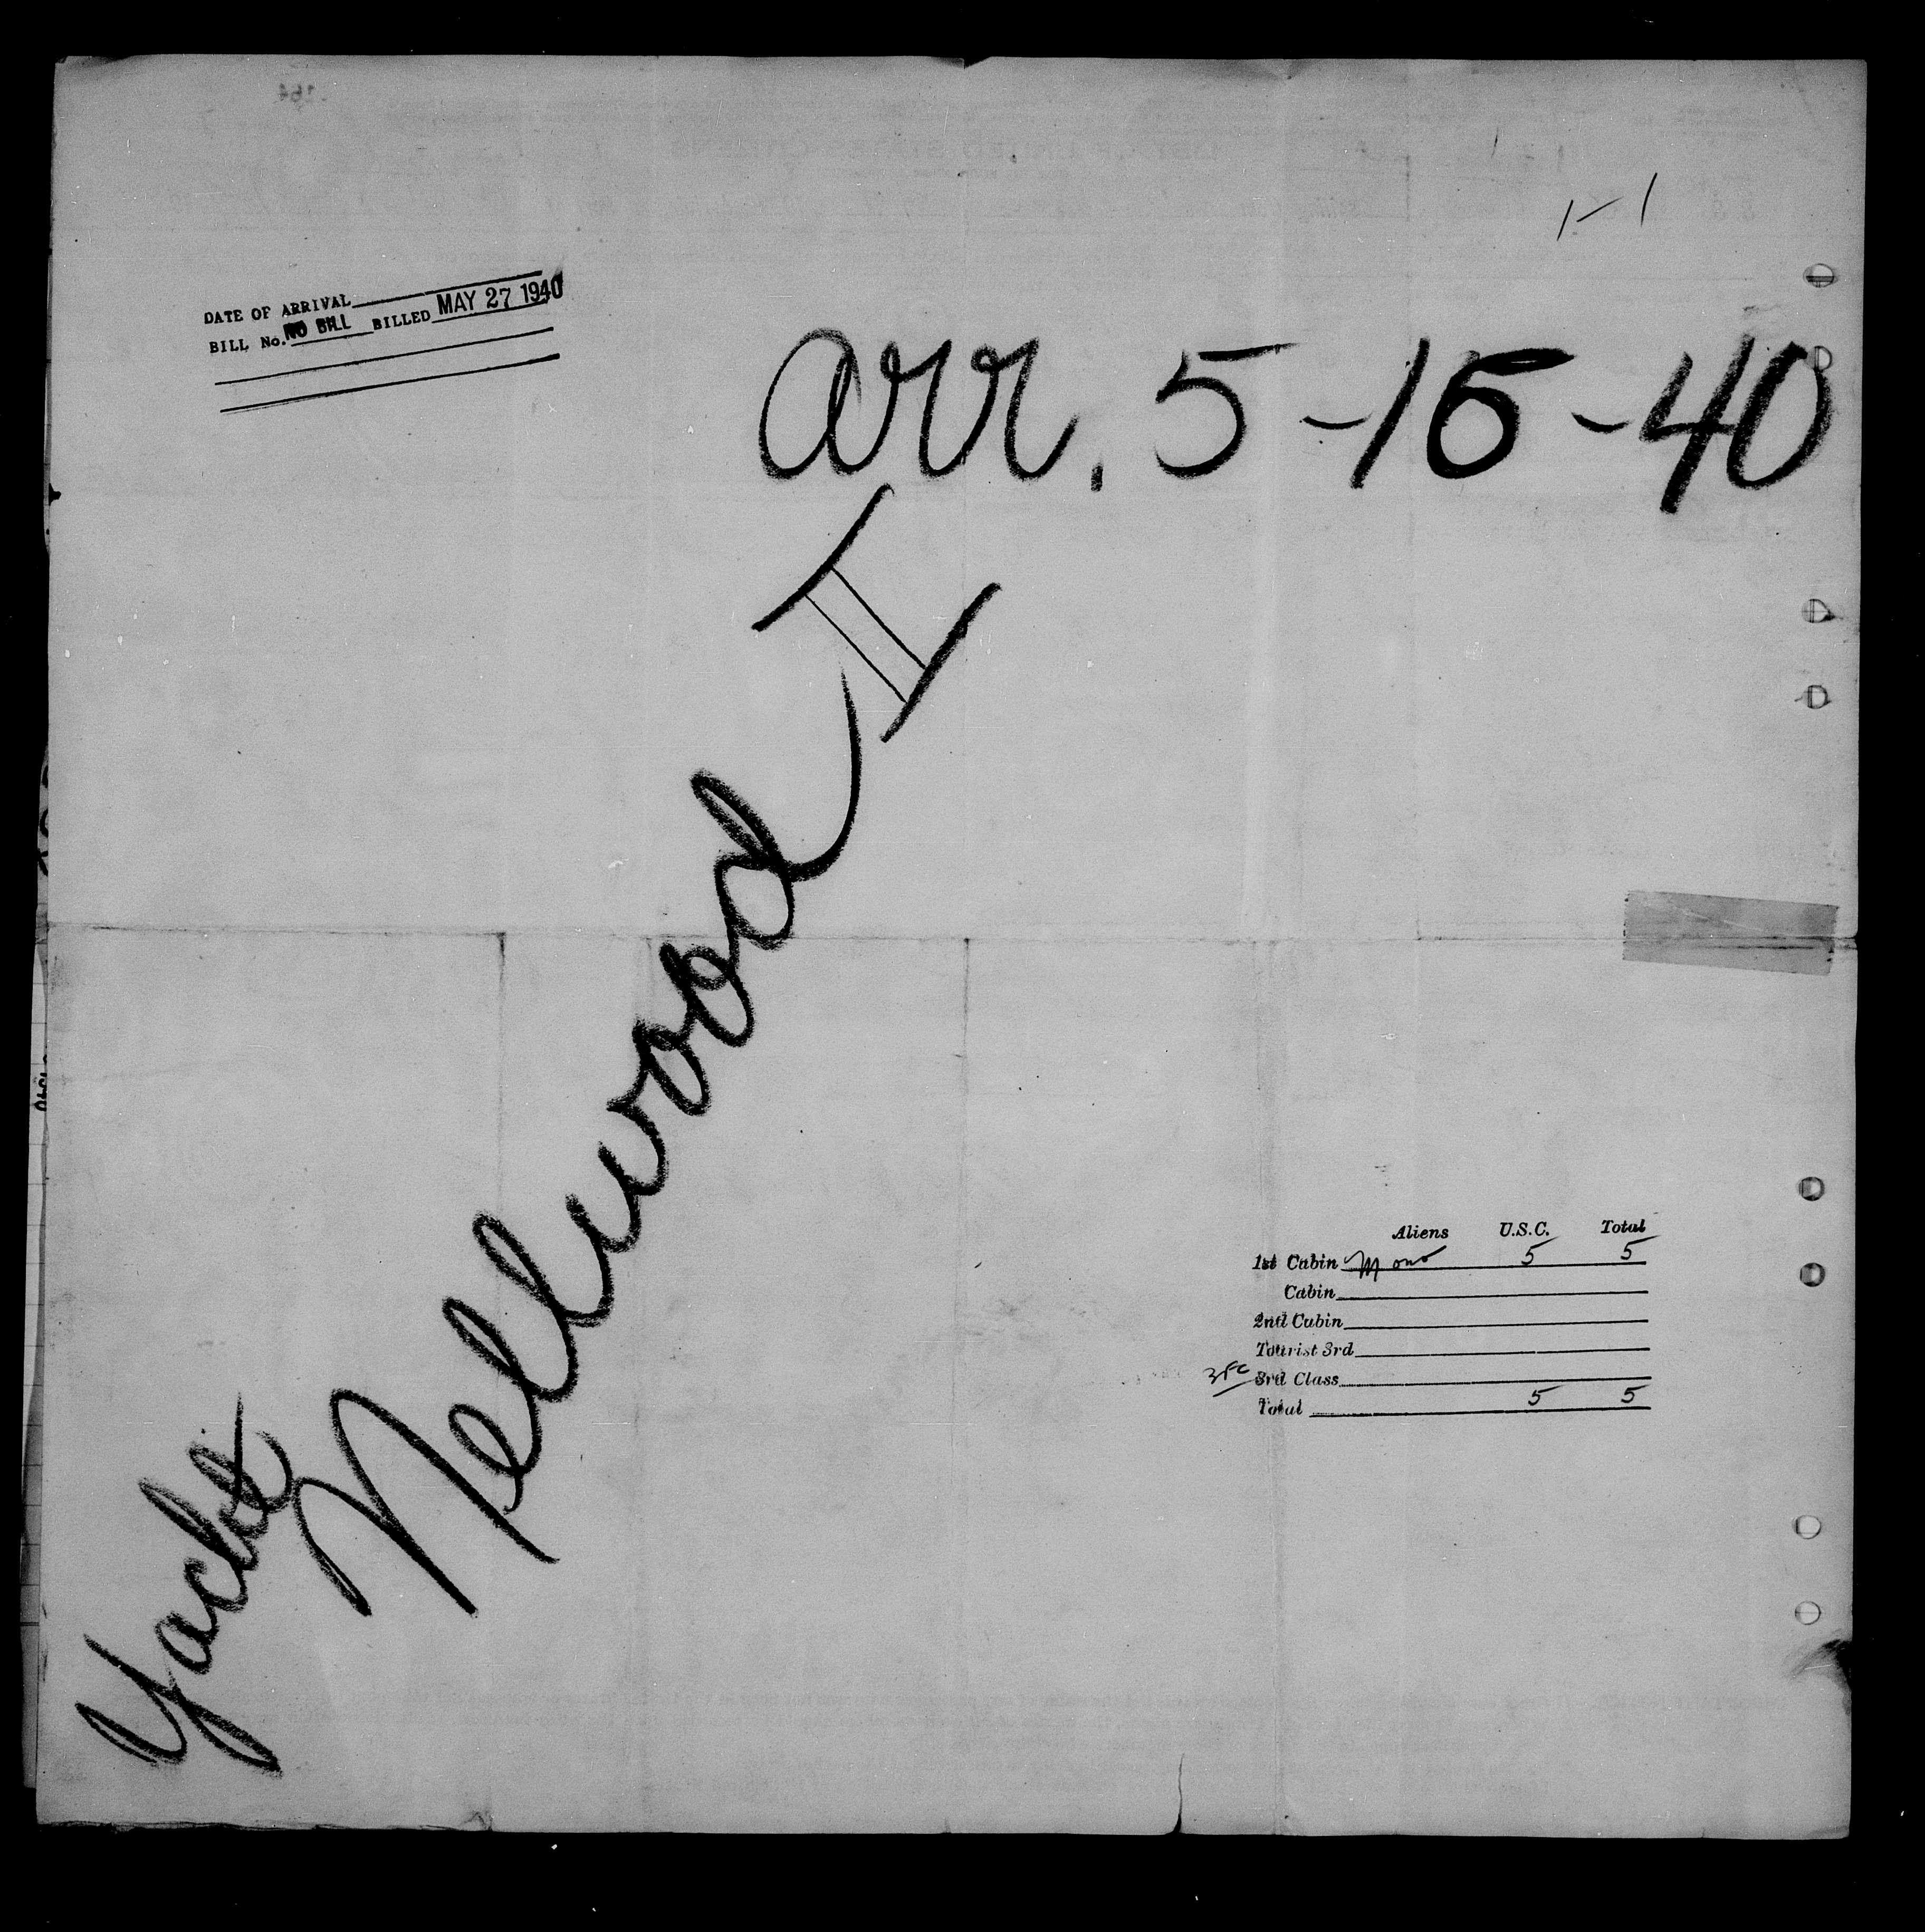 1 - 1
DATE OF ARRIVAL
BILL No. NO BILL BILLED MAY 27 1940
arr. 5-15-40
Yacht
Nellwood II
Aliens U.S.C. Total
1st Cabin None 5 5
Cabin
2nd Cabin
Tourist 3rd
3rd Class
Total 5 5